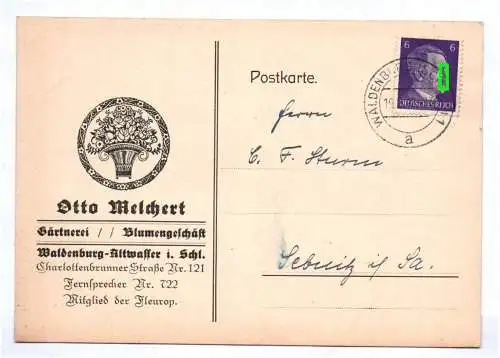 Otto Melchert
Gärtnerei // Blumengeschäft
Waldenburg-Altwasser i. Schl.
Charlottenbrunner Straße Nr. 121
Fernsprecher Nr. 722
Mitglied der Fleurop.
Postkarte.
6 6
DEUTSCHES REICH
WALDENBURG
19
1
a
Herrn
C. F. Sturm
Sebnitz i/ Sa.